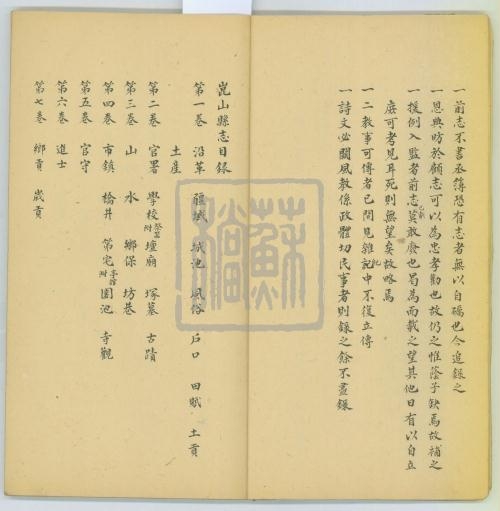 一前志不書丞簿恐有志者無以自礪也今追錄之
一恩典昉於顧志可以為忠孝勸也故仍之惟蔭子缺焉故補之
一援例入監者前志莫敢廢也曷為而載之望其他日有以自立
庶可考見耳死則無望矣故略焉
一二教事可傳者已間見雜記中不復立傳
一詩文必關風教係政體切民事者則錄之餘不盡錄
崑山縣志目錄
第一卷 沿革 疆域 城池 風俗 戶口 田賦 土貢
土產
第二卷 官署 學校 社學附 壇廟 塚墓 古蹟
第三卷 山 水 鄉保 坊巷
第四卷 市鎮 橋井 第宅 亭館附 園池 寺觀
第五卷 官守
第六卷 進士
第七卷 鄉貢 歲貢